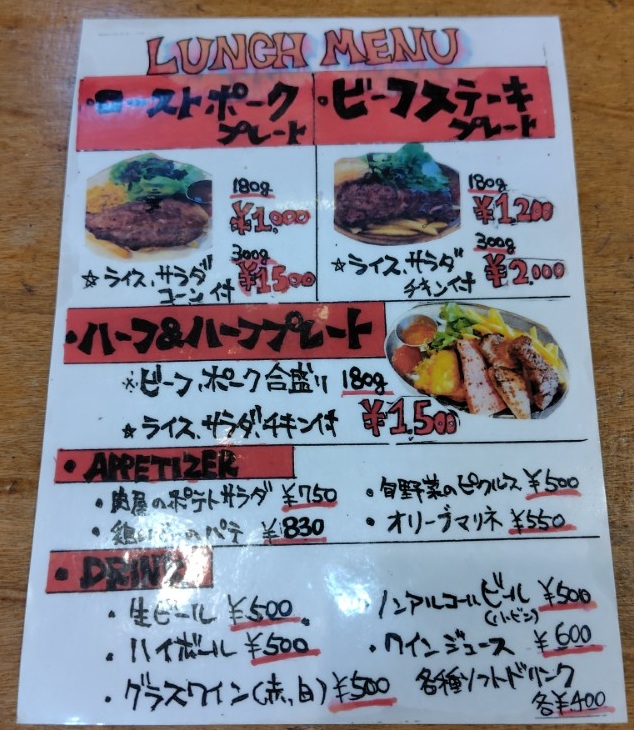 LUNCH MENU
・ローストポークプレート
・ビーフステーキプレート
180g
¥1,000
300g
¥1500
☆ライス、サラダ
コーン付
180g
¥1200
300g
¥2,000
☆ライス、サラダ
チキン付
・ハーフ&ハーフプレート
※ビーフ、ポーク合盛り 180g
☆ライス、サラダ、チキン付 ¥1,500
・APPETIZER
・肉屋のポテトサラダ ¥750
・旬野菜のピクルス ¥500
パテ ¥830
・オリーブマリネ ¥550
・DRINK
・生ビール ¥500
・ノンアルコールビール ¥500
(小ビン)
・ハイボール ¥500
・ワインジュース ¥600
・グラスワイン(赤,白) ¥500
各種ソフトドリンク
各¥400